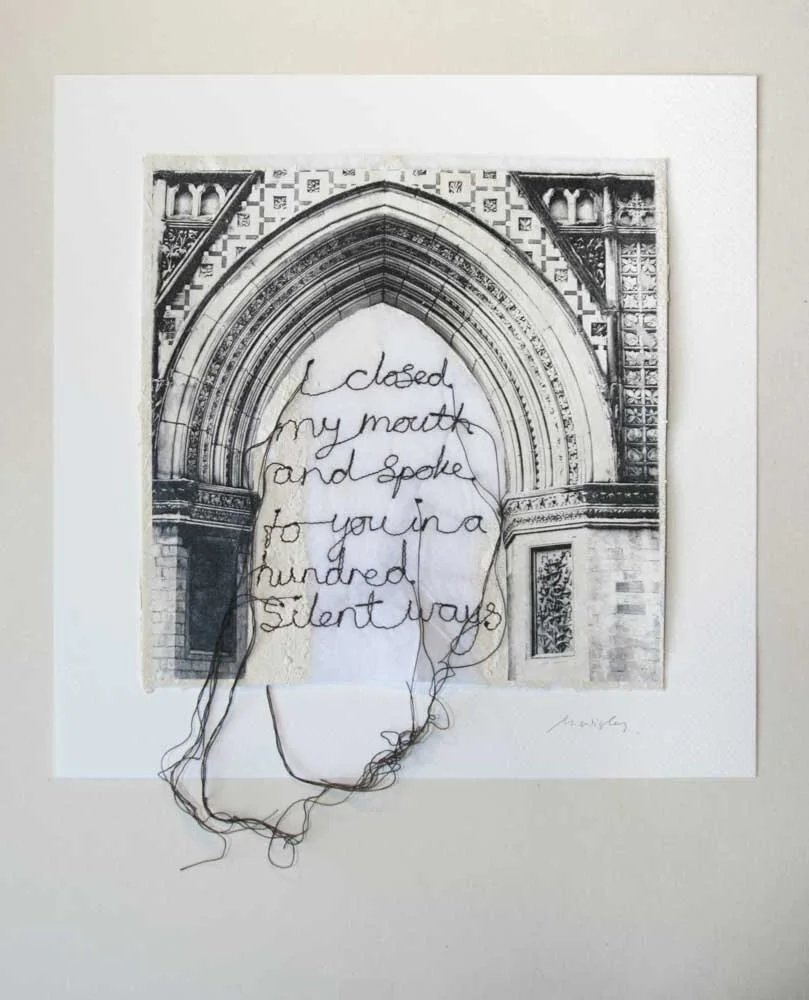 I closed
my mouth
and spoke
to you in a
hundred
Silent ways